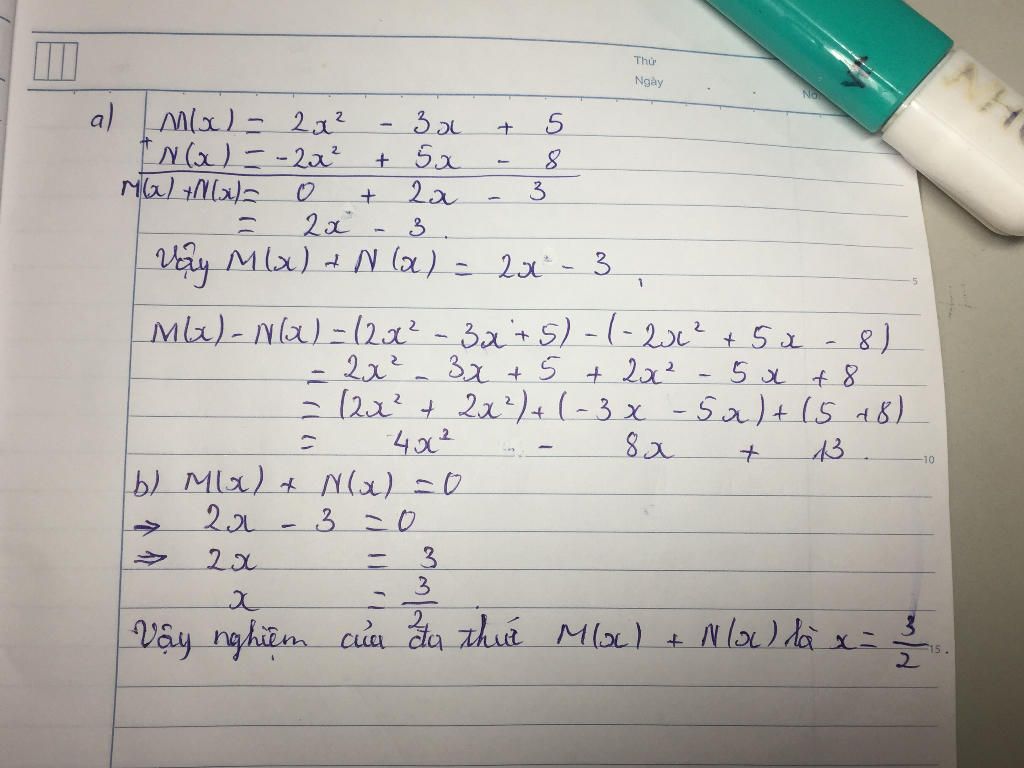 Thứ
Ngày
a) M(x) = 2x² - 3x + 5
+ N(x) = -2x² + 5x - 8
M(x) + N(x) = 0 + 2x - 3
= 2x - 3.
Vậy M(x) + N(x) = 2x - 3
5
M(x) - N(x) = (2x² - 3x + 5) - (-2x² + 5x - 8)
= 2x² - 3x + 5 + 2x² - 5x + 8
= (2x² + 2x²) + (-3x - 5x) + (5 + 8)
= 4x² - 8x + 13.
10
b) M(x) + N(x) = 0
⇒ 2x - 3 = 0
⇒ 2x = 3
x = 3/2.
Vậy nghiệm của đa thức M(x) + N(x) là x = 3/2.
15